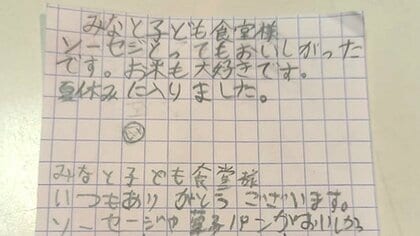 みなと子ども食堂様
ソーセジとってもおいしかった
です。お米も大好きです。
夏休みに入りました。
みなと子ども食堂様
いつもありがとうございます。
ソーセージや菓子パンがおいしか